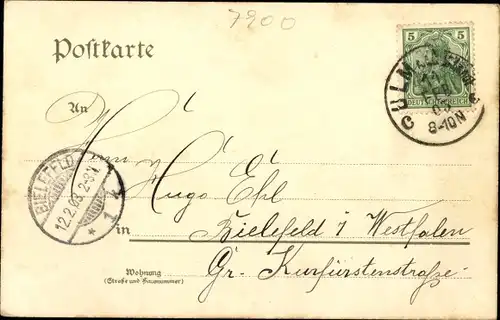 7900
Postkarte
5 5
DEUTSCHES REICH
CULM
8-9N
An
Herrn
Hugo Ehl
BIELEFELD
12.2.03. 2-3N
* 1
in Bielefeld i Westfalen
Gr. Kurfürstenstraße.
Wohnung
(Straße und Hausnummer)